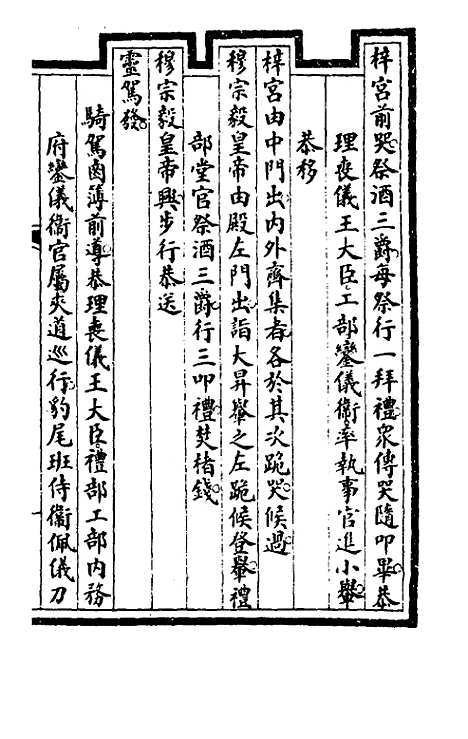 梓宮前哭祭酒三爵每祭行一拜禮眾傳哭隨叩畢恭
理喪儀王大臣工部鑾儀衞率執事官進小轝
恭移
梓宮由中門出內外齊集者各於其次跪哭候過
穆宗毅皇帝由殿左門出詣大昇轝之左跪候登轝禮
部堂官祭酒三爵行三叩禮焚楮錢
穆宗毅皇帝興步行恭送
靈駕發
騎駕鹵薄前導恭理喪儀王大臣禮部工部內務
府鑾儀衞官屬夾道巡行豹尾班侍衞佩儀刀